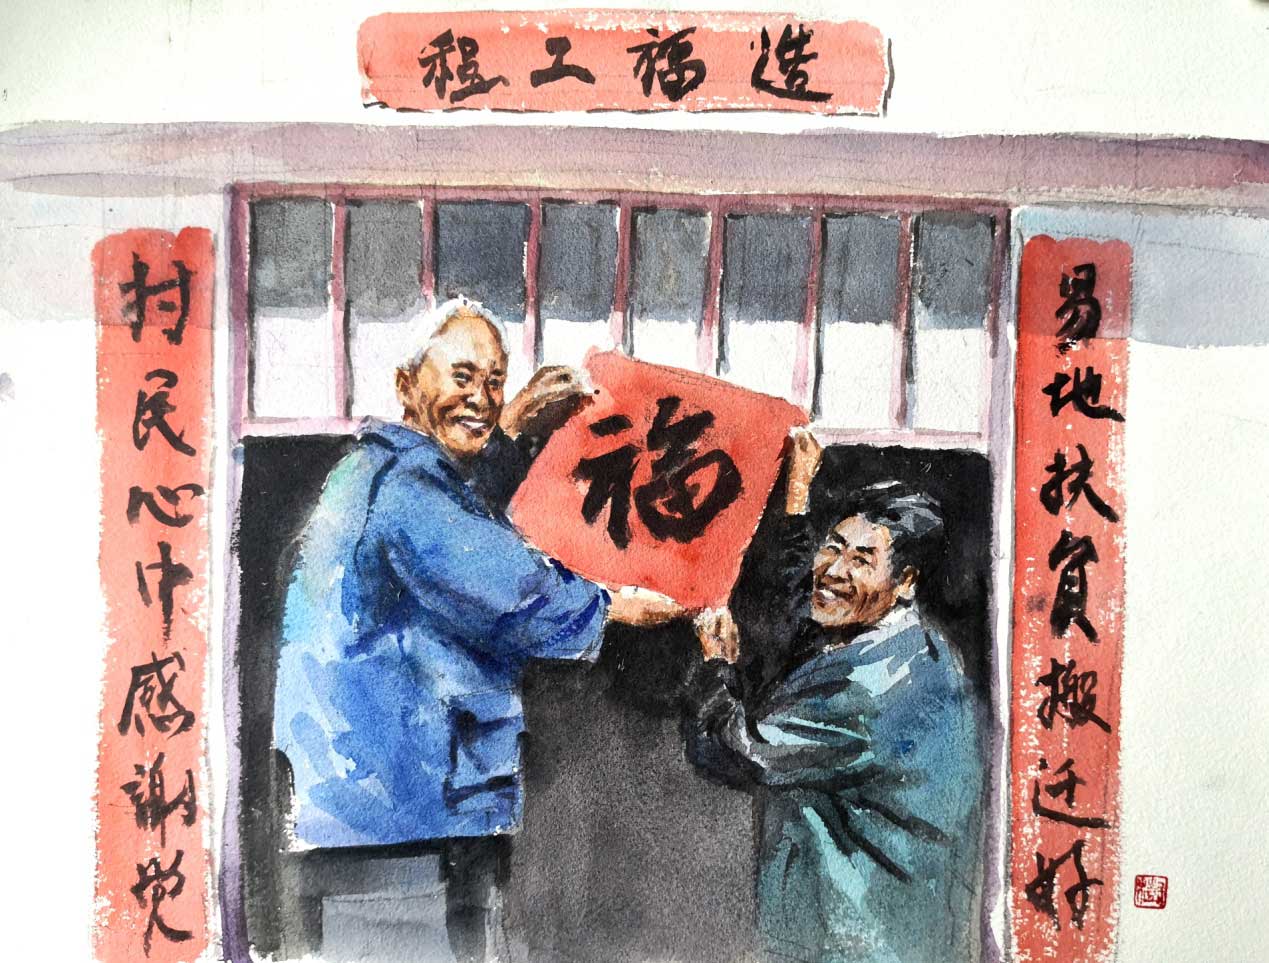 造福工程
易地扶貧搬迁好
村民心中感謝党
福